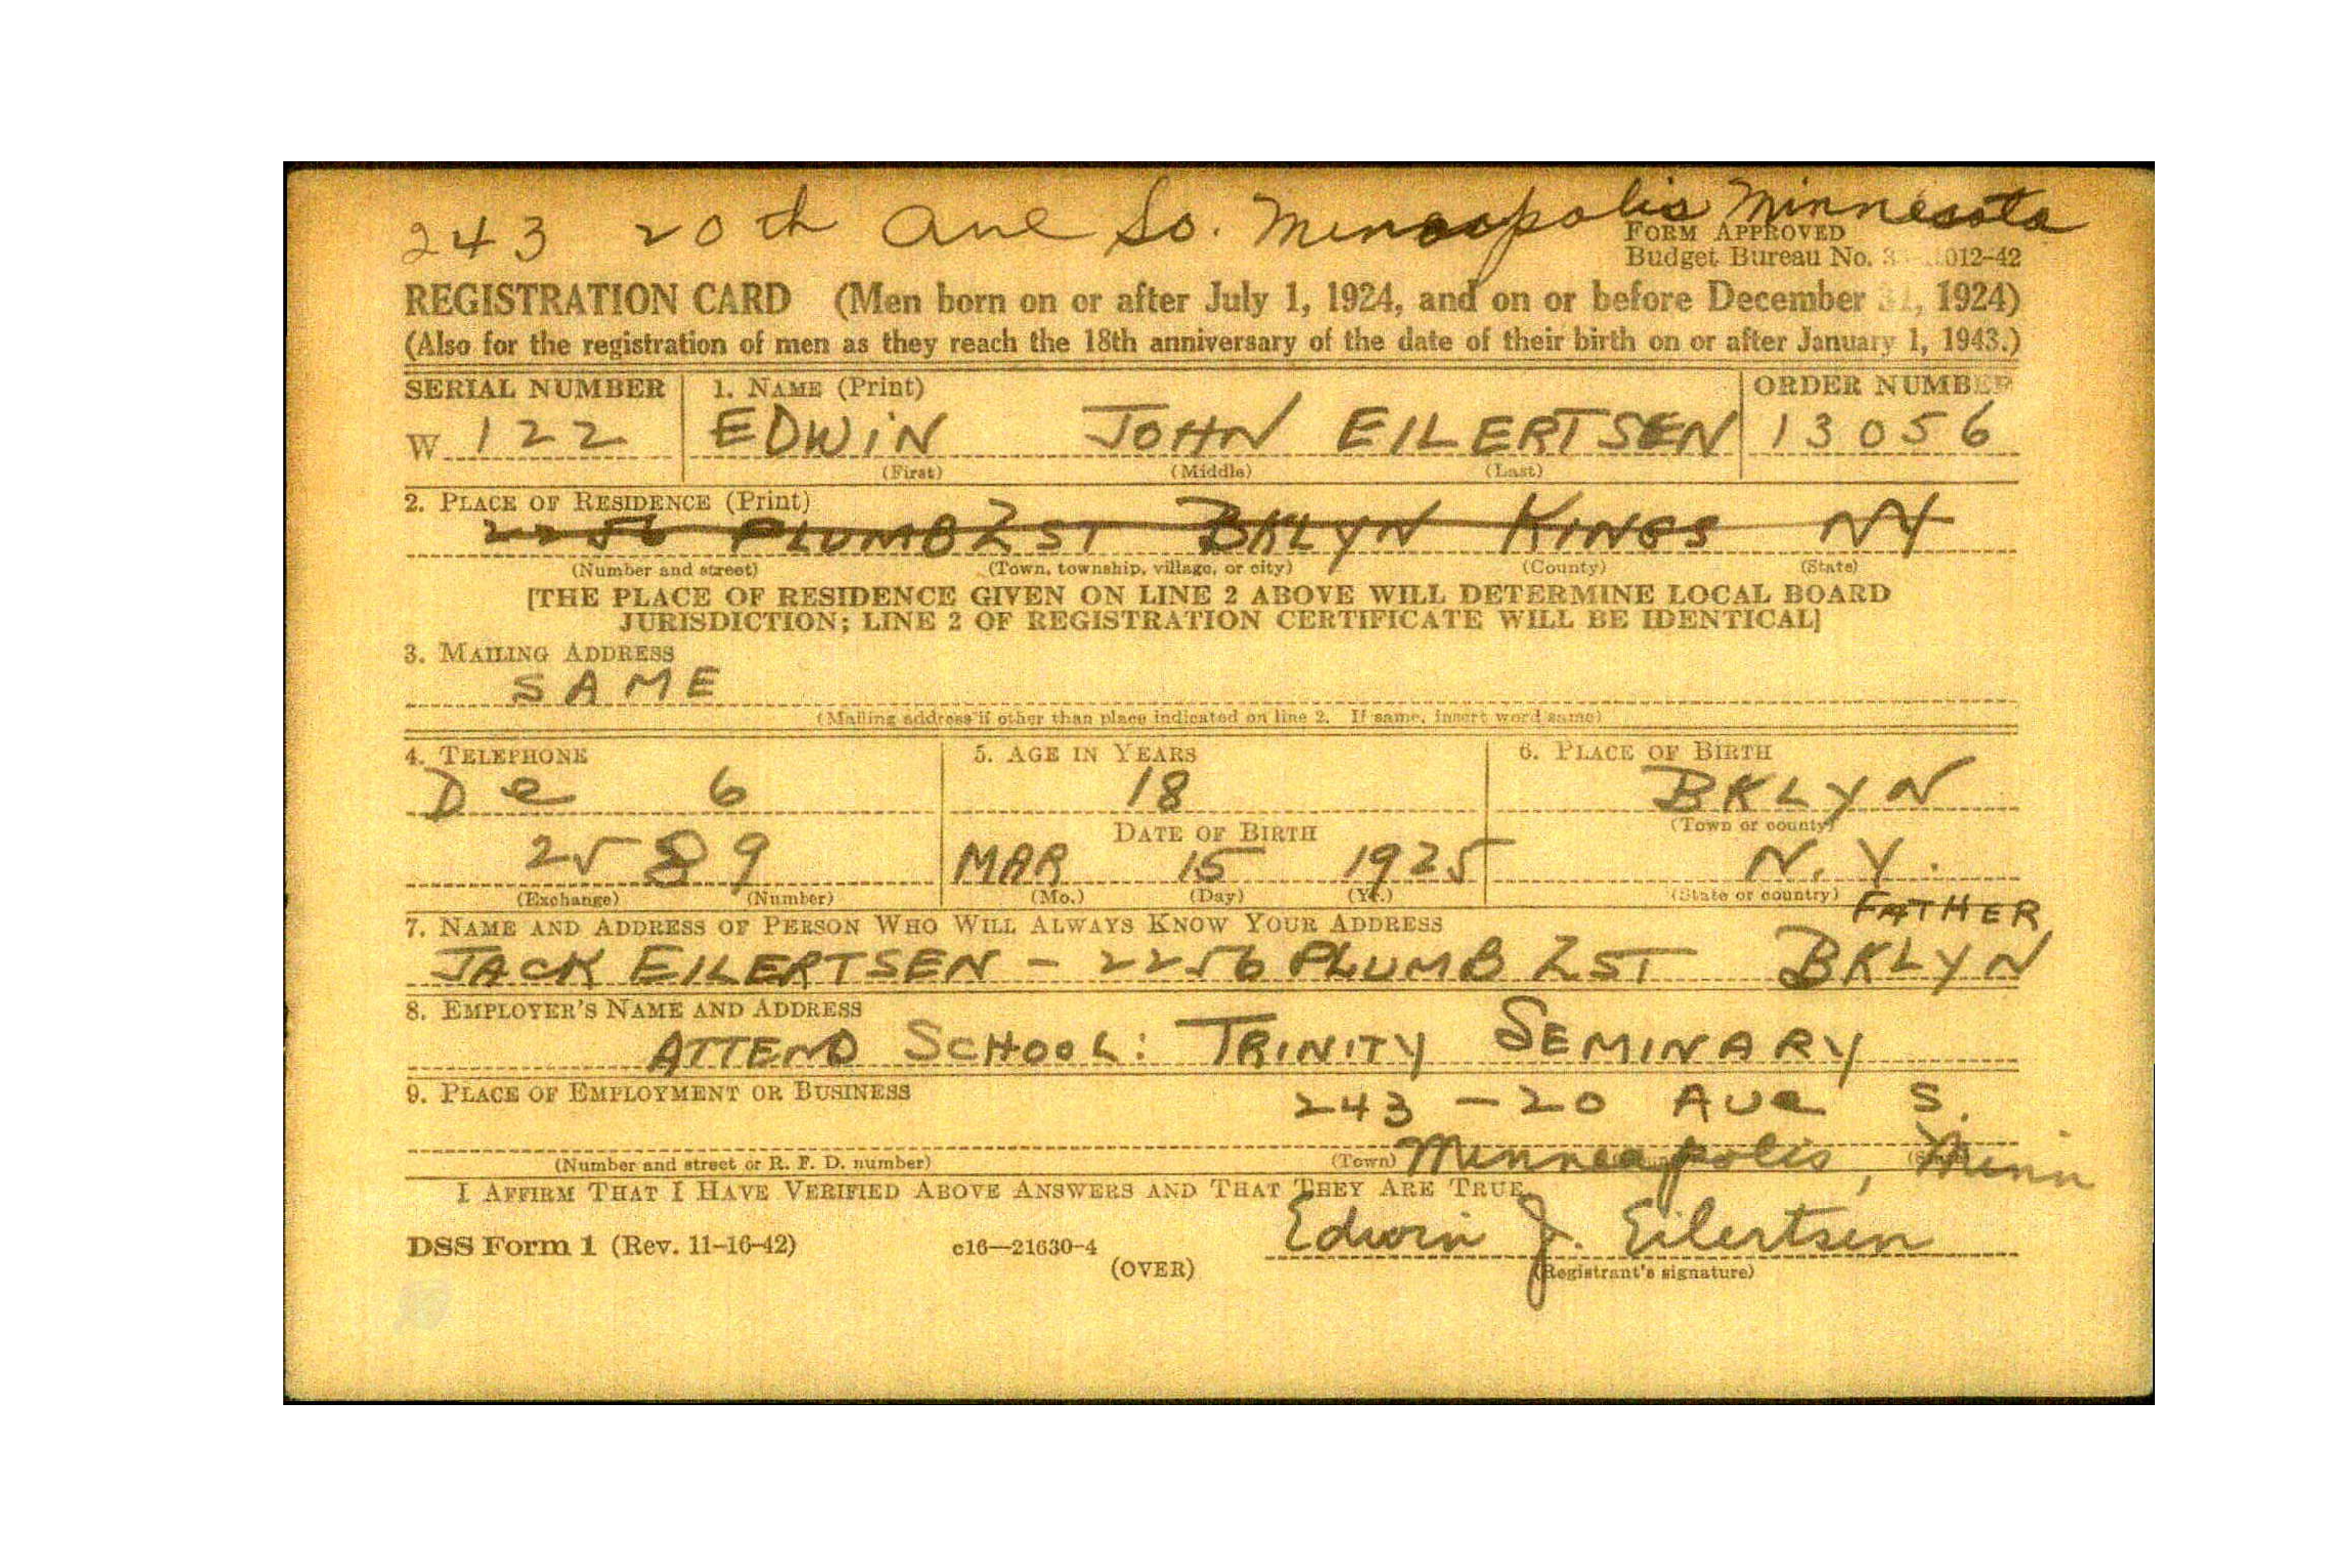 243 20th Ave So. Minneapolis Minnesota
FORM APPROVED
Budget Bureau No. 3 012-42
REGISTRATION CARD (Men born on or after July 1, 1924, and on or before December 31, 1924)
(Also for the registration of men as they reach the 18th anniversary of the date of their birth on or after January 1, 1943.)
SERIAL NUMBER 1. NAME (Print) ORDER NUMBER
W 122 EDWIN JOHN EILERTSEN 13056
(First) (Middle) (Last)
2. PLACE OF RESIDENCE (Print)
2256 PLUMB 2 ST BKLYN KINGS NY
(Number and street) (Town, township, village, or city) (County) (State)
[THE PLACE OF RESIDENCE GIVEN ON LINE 2 ABOVE WILL DETERMINE LOCAL BOARD
JURISDICTION; LINE 2 OF REGISTRATION CERTIFICATE WILL BE IDENTICAL]
3. MAILING ADDRESS
SAME
(Mailing address if other than place indicated on line 2. If same, insert word same)
4. TELEPHONE 5. AGE IN YEARS 6. PLACE OF BIRTH
De 6 18 BKLYN
DATE OF BIRTH (Town or county)
2589 MAR 15 1925 N.Y.
(Exchange) (Number) (Mo.) (Day) (Yr.) (State or country)
FATHER
7. NAME AND ADDRESS OF PERSON WHO WILL ALWAYS KNOW YOUR ADDRESS
JACK EILERTSEN - 2256 PLUMB 2 ST BKLYN
8. EMPLOYER'S NAME AND ADDRESS
ATTEND SCHOOL: TRINITY SEMINARY
9. PLACE OF EMPLOYMENT OR BUSINESS 243 - 20 AVe S.
Minneapolis, Minn
(Number and street or R. F. D. number) (Town)
I AFFIRM THAT I HAVE VERIFIED ABOVE ANSWERS AND THAT THEY ARE TRUE.
Edwin J. Eilertsen
DSS Form 1 (Rev. 11-16-42) c16—21630-4
(OVER) (Registrant's signature)